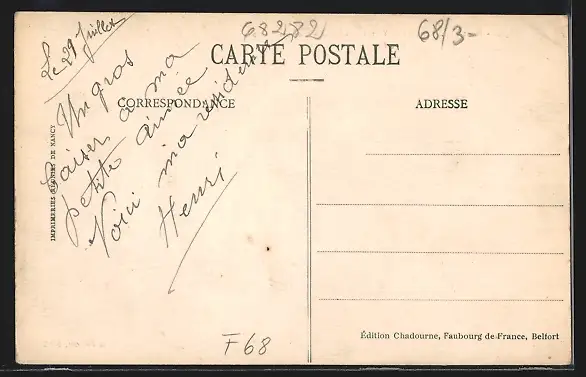 68282
68/3-
CARTE POSTALE
CORRESPONDANCE
ADRESSE
Le 29 Juillet
Un gros
baiser a ma
petite aimée
Voici ma résidence
Henri
IMPRIMERIES RÉUNIES DE NANCY
F 68
Édition Chadourne, Faubourg de France, Belfort